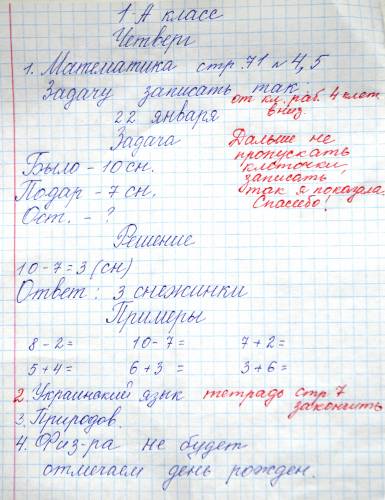 1 А класс
Четверг
1. Математика стр. 71 № 4, 5
Задачу записать так
от кл. раб. 4 клет.
вниз
22 января
Задача
Дальше не
пропускать
клеточки,
записать
так я показала.
Спасибо!
Было - 10 сн.
Подар - 7 сн.
Ост. - ?
Решение
10 - 7 = 3 (сн)
Ответ: 3 снежинки
Примеры
8 - 2 = 10 - 7 = 7 + 2 =
5 + 4 = 6 + 3 = 3 + 6 =
2. Украинский язык тетрадь стр 7
закончить
3. Природов.
4. Физ-ра не будет
отмечаем день рожден.